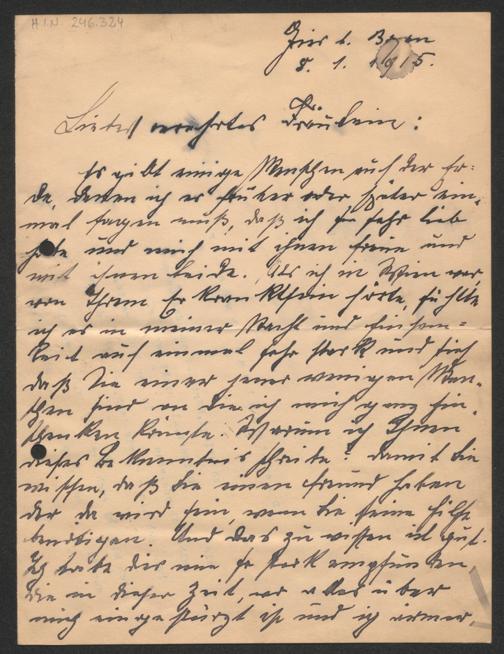 H.I.N. 246.324
8. 1. 1915.
Liebes verehrtes Fräulein:
Es gibt einige Menschen auf der Er-
de, denen ich es früher oder später ein-
mal sagen muß, daß ich sie sehr lieb
habe und mich mit ihnen freue und
mit ihnen leide. Als ich in Wien war,
von Ihrem Kranksein hörte, fühlte
ich es in meiner und Einsam-
keit auch einmal sehr stark und tief
daß Sie einer jener wenigen Men-
schen sind an die ich mich ganz hin-
schenken könnte. Warum ich Ihnen
dieses Bekenntnis schreibe? damit Sie
wissen, daß Sie einen Freund haben
der da wird sein, wenn Sie seine Hilfe
benötigen. Und das zu wissen ist gut.
Ich habe dies nie so stark empfunden,
wie in dieser Zeit, wo alles über
mich eingestürzt ist und ich armer,